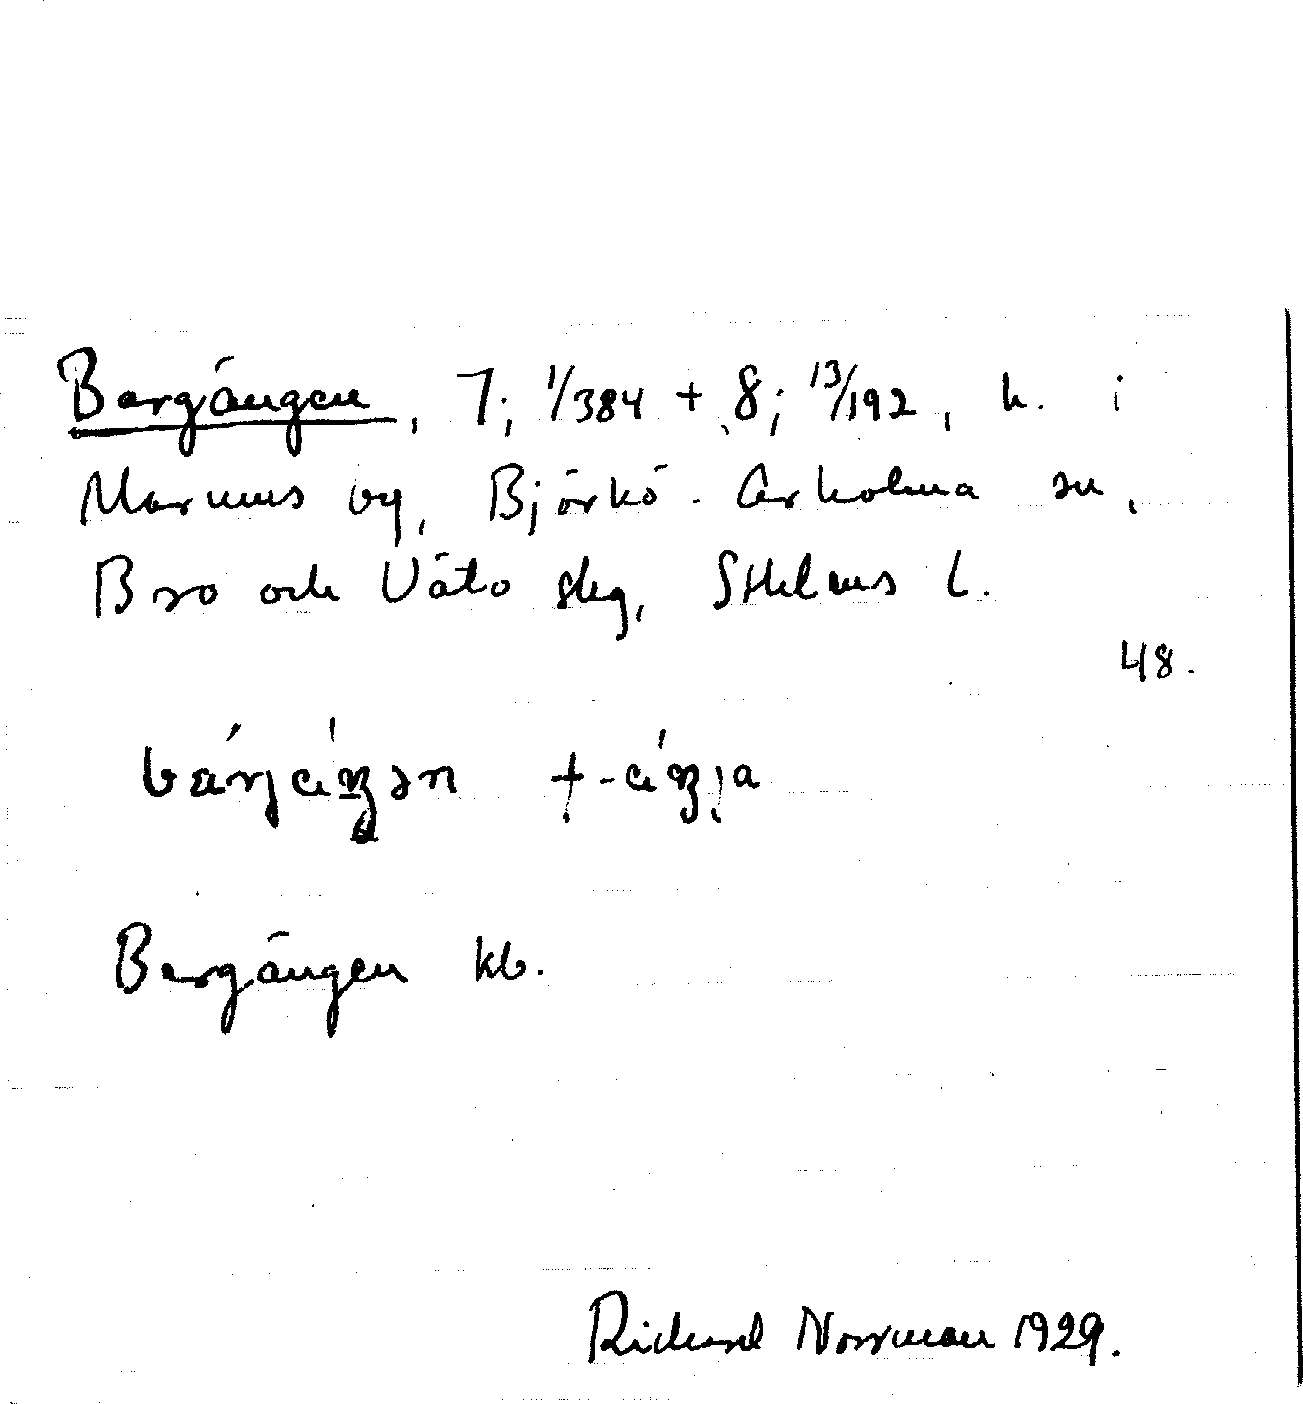 Bergängen, 7; 1/384 + 8; 13/192, h. i
Marums by, Björkö-Arholma sn,
Bro och Vätö skg, Sthlms l.
48.
Bergängen kb.
Richard Norrman 1929.